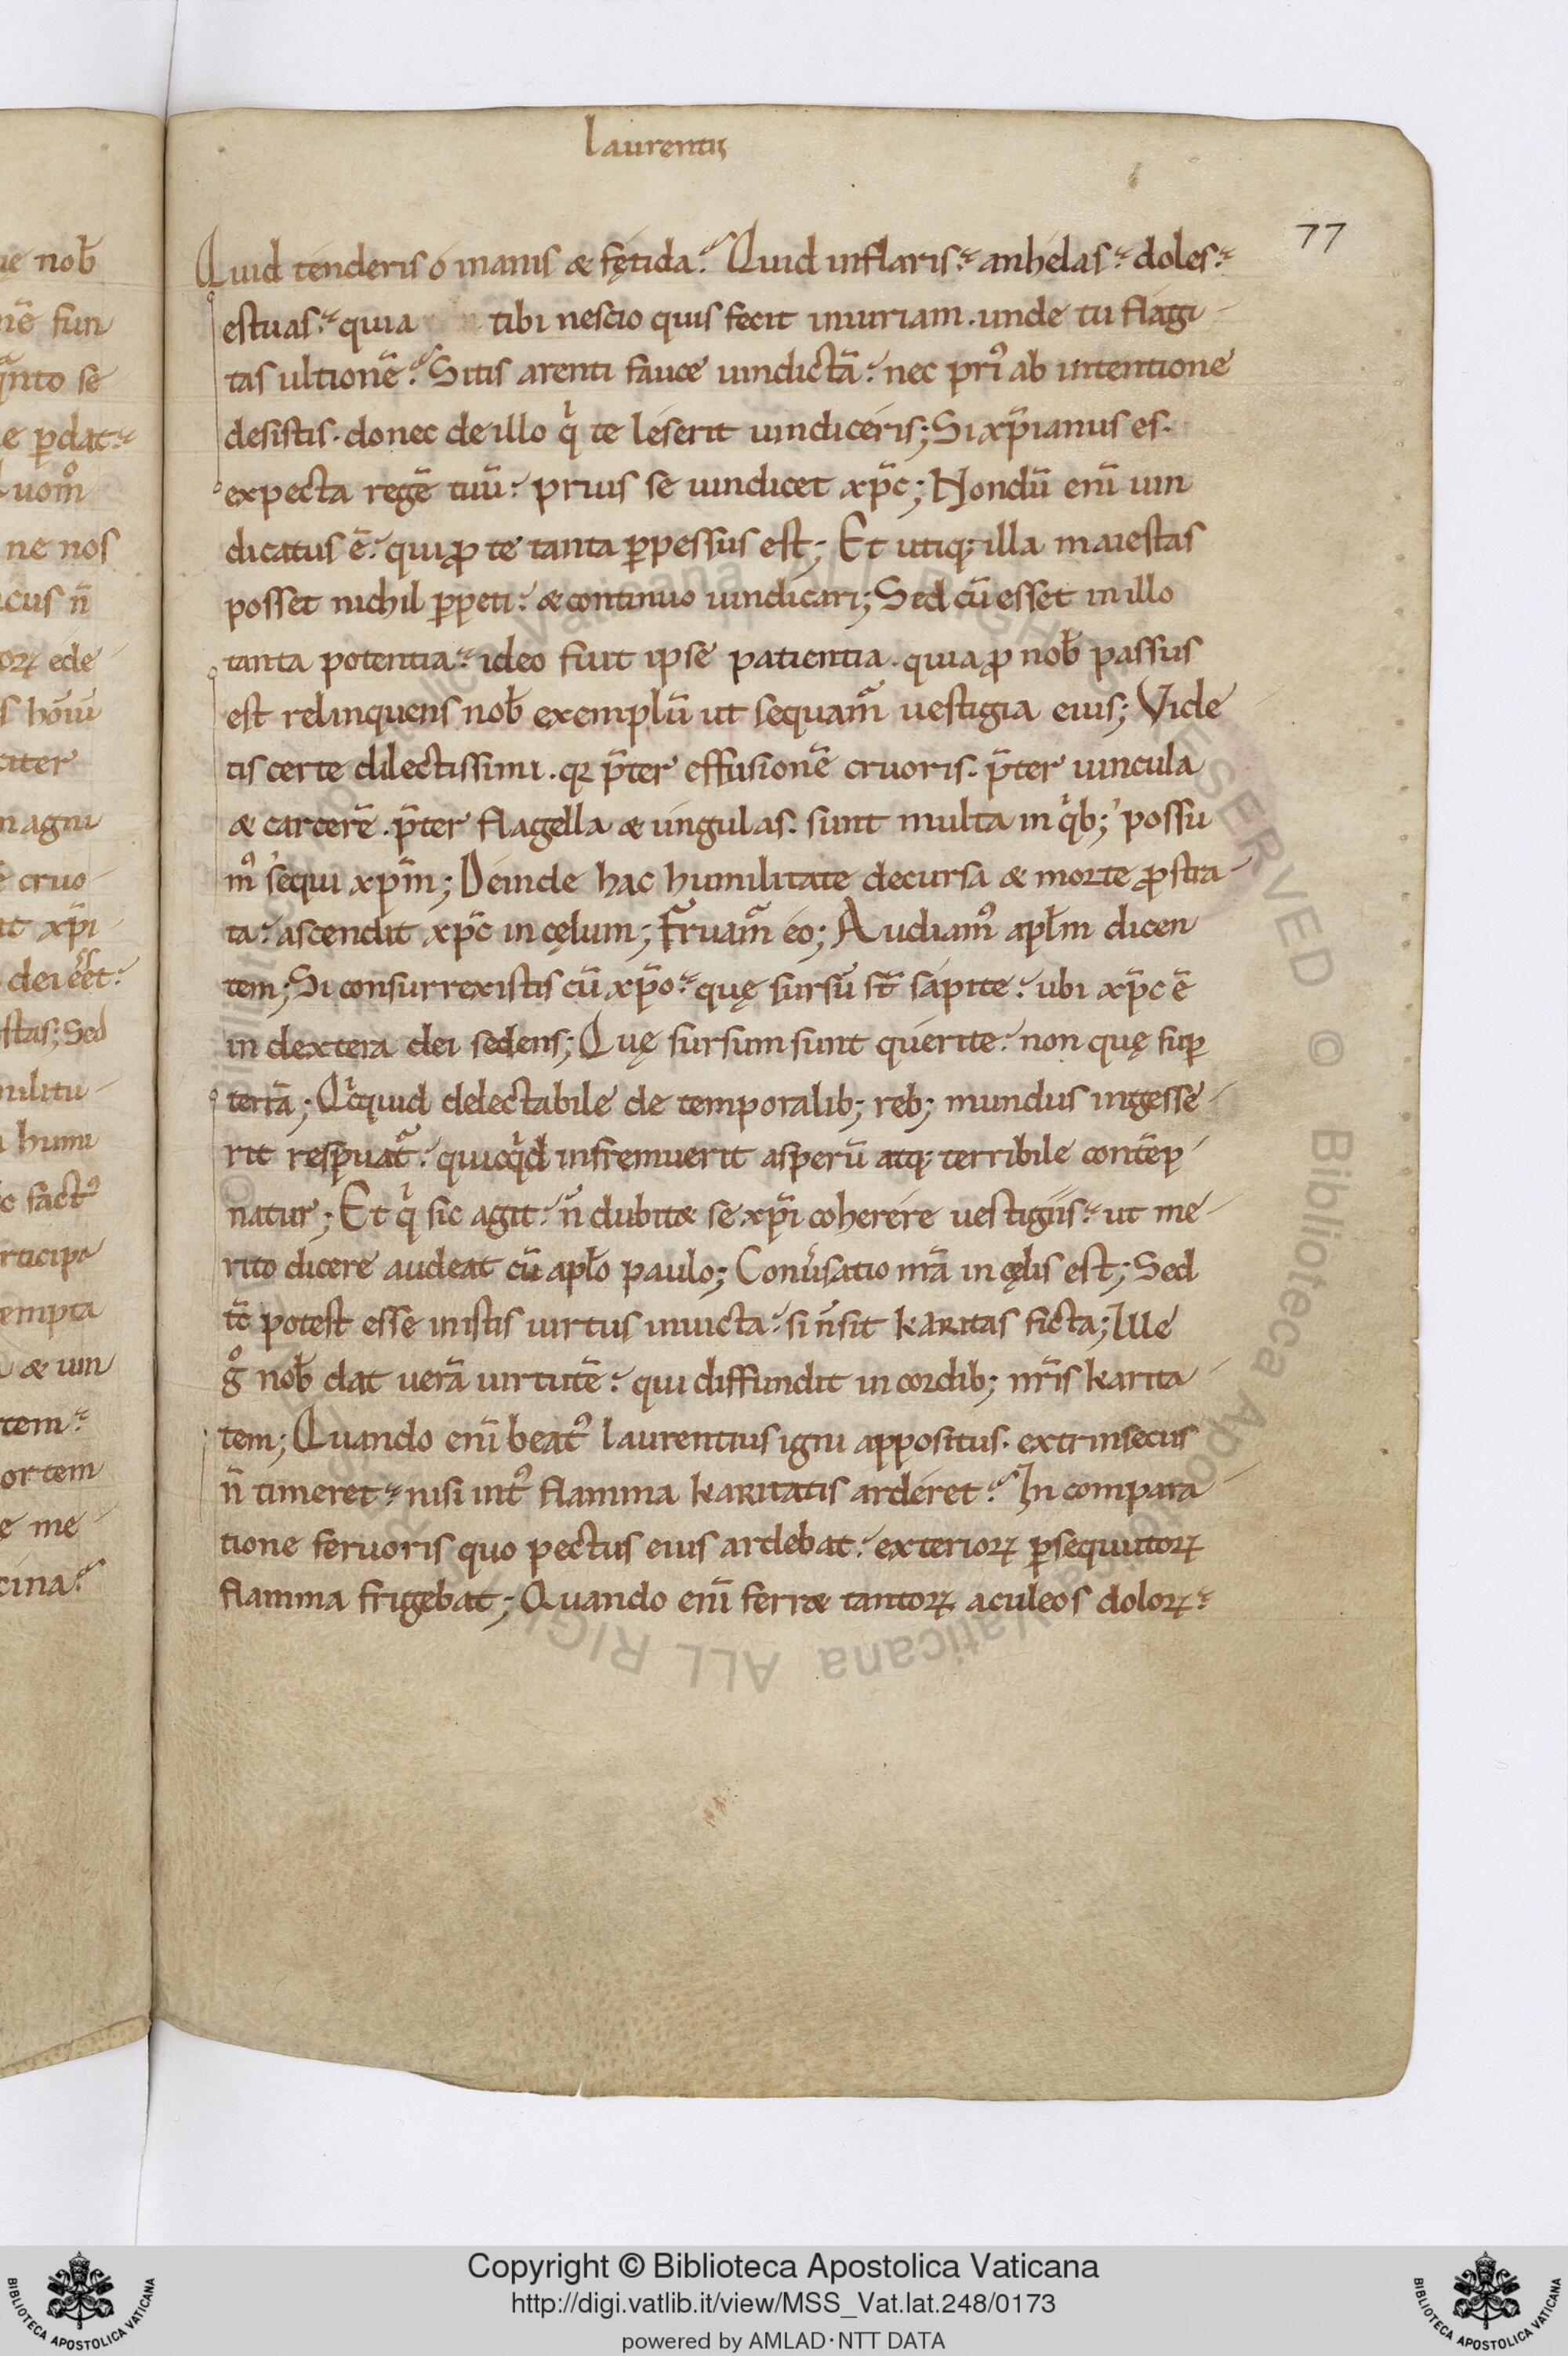 laurentii
77
Quid tenderis o inanis & fętida? Quid inflaris? anhelas? doles?
estuas? quia tibi nescio quis fecit iniuriam. unde tu flagi
tas ultionē? Sitis arenti fauce uindictā? nec pri᾽ ab intentione
desistis. donec de illo qͥ te leserit uindiceris; Si xp̄ianus es.
expecta regē tuū? prius se uindicet xp̄c; Nondū enī uin
dicatus ē? qui ꝓ te tanta ꝑpessus est; Et utiq; illa maiestas
posset nichil ꝑpeti? & continuo uindicari; Sed cū esset in illo
tanta potentia? ideo fuit ipse patientia. quia ꝓ nob̄ passus
est relinquens nob̄ exemplū ut sequam̄ uestigia eius; Vide
tis certe dilectissimi. qꝛ p̄ter effusionē cruoris. p̄ter uincula
& carcerē. p̄ter flagella & ungulas. sunt multa in qͥb; possu
m᾽ sequi xp̄m; Deinde hac humilitate decursa & morte ꝓstra
ta? ascendit xp̄c in cęlum; Fruam̄ eo; Audiam᾽ apl̄m dicen
tem; Si consurrexistis cū xp̄o? quę sursū st̄ sapite? ubi xp̄c ē
in dextera dei sedens; Quę sursum sunt querite? non quę suꝑ
terrā; Qͥcquid delectabile de temporalib; reb; mundus ingesse
rit respuat̄? quicqͥd infremuerit asperū atq; terribile contēp
natur; Et qͥ sic agit? n̄ dubit& se xp̄i coherere uestigiis? ut me
rito dicere audeat cū apl̄o paulo; Conūsatio nr̄a in cęlis est; Sed
tc̄ potest esse in istis uirtus inuicta? si n̄ sit karitas ficta; Ille
gͦ nob̄ dat uerā uirtutē? qui diffundit in cordib; nr̄is karita
tem; Quando enī beat᾽ laurentius igni appositus. extrinsecus
n̄ timeret? nisi int᾽ flamma karitatis arderet? In compara
tione feruoris quo pectus eius ardebat? exterioꝝ ꝑsequutoꝝ
flamma frigebat; Quando enī ferr& tantoꝝ aculeos doloꝝ?
Copyright © Biblioteca Apostolica Vaticana
http://digi.vatlib.it/view/MSS_Vat.lat.248/0173
powered by AMLAD·NTT DATA